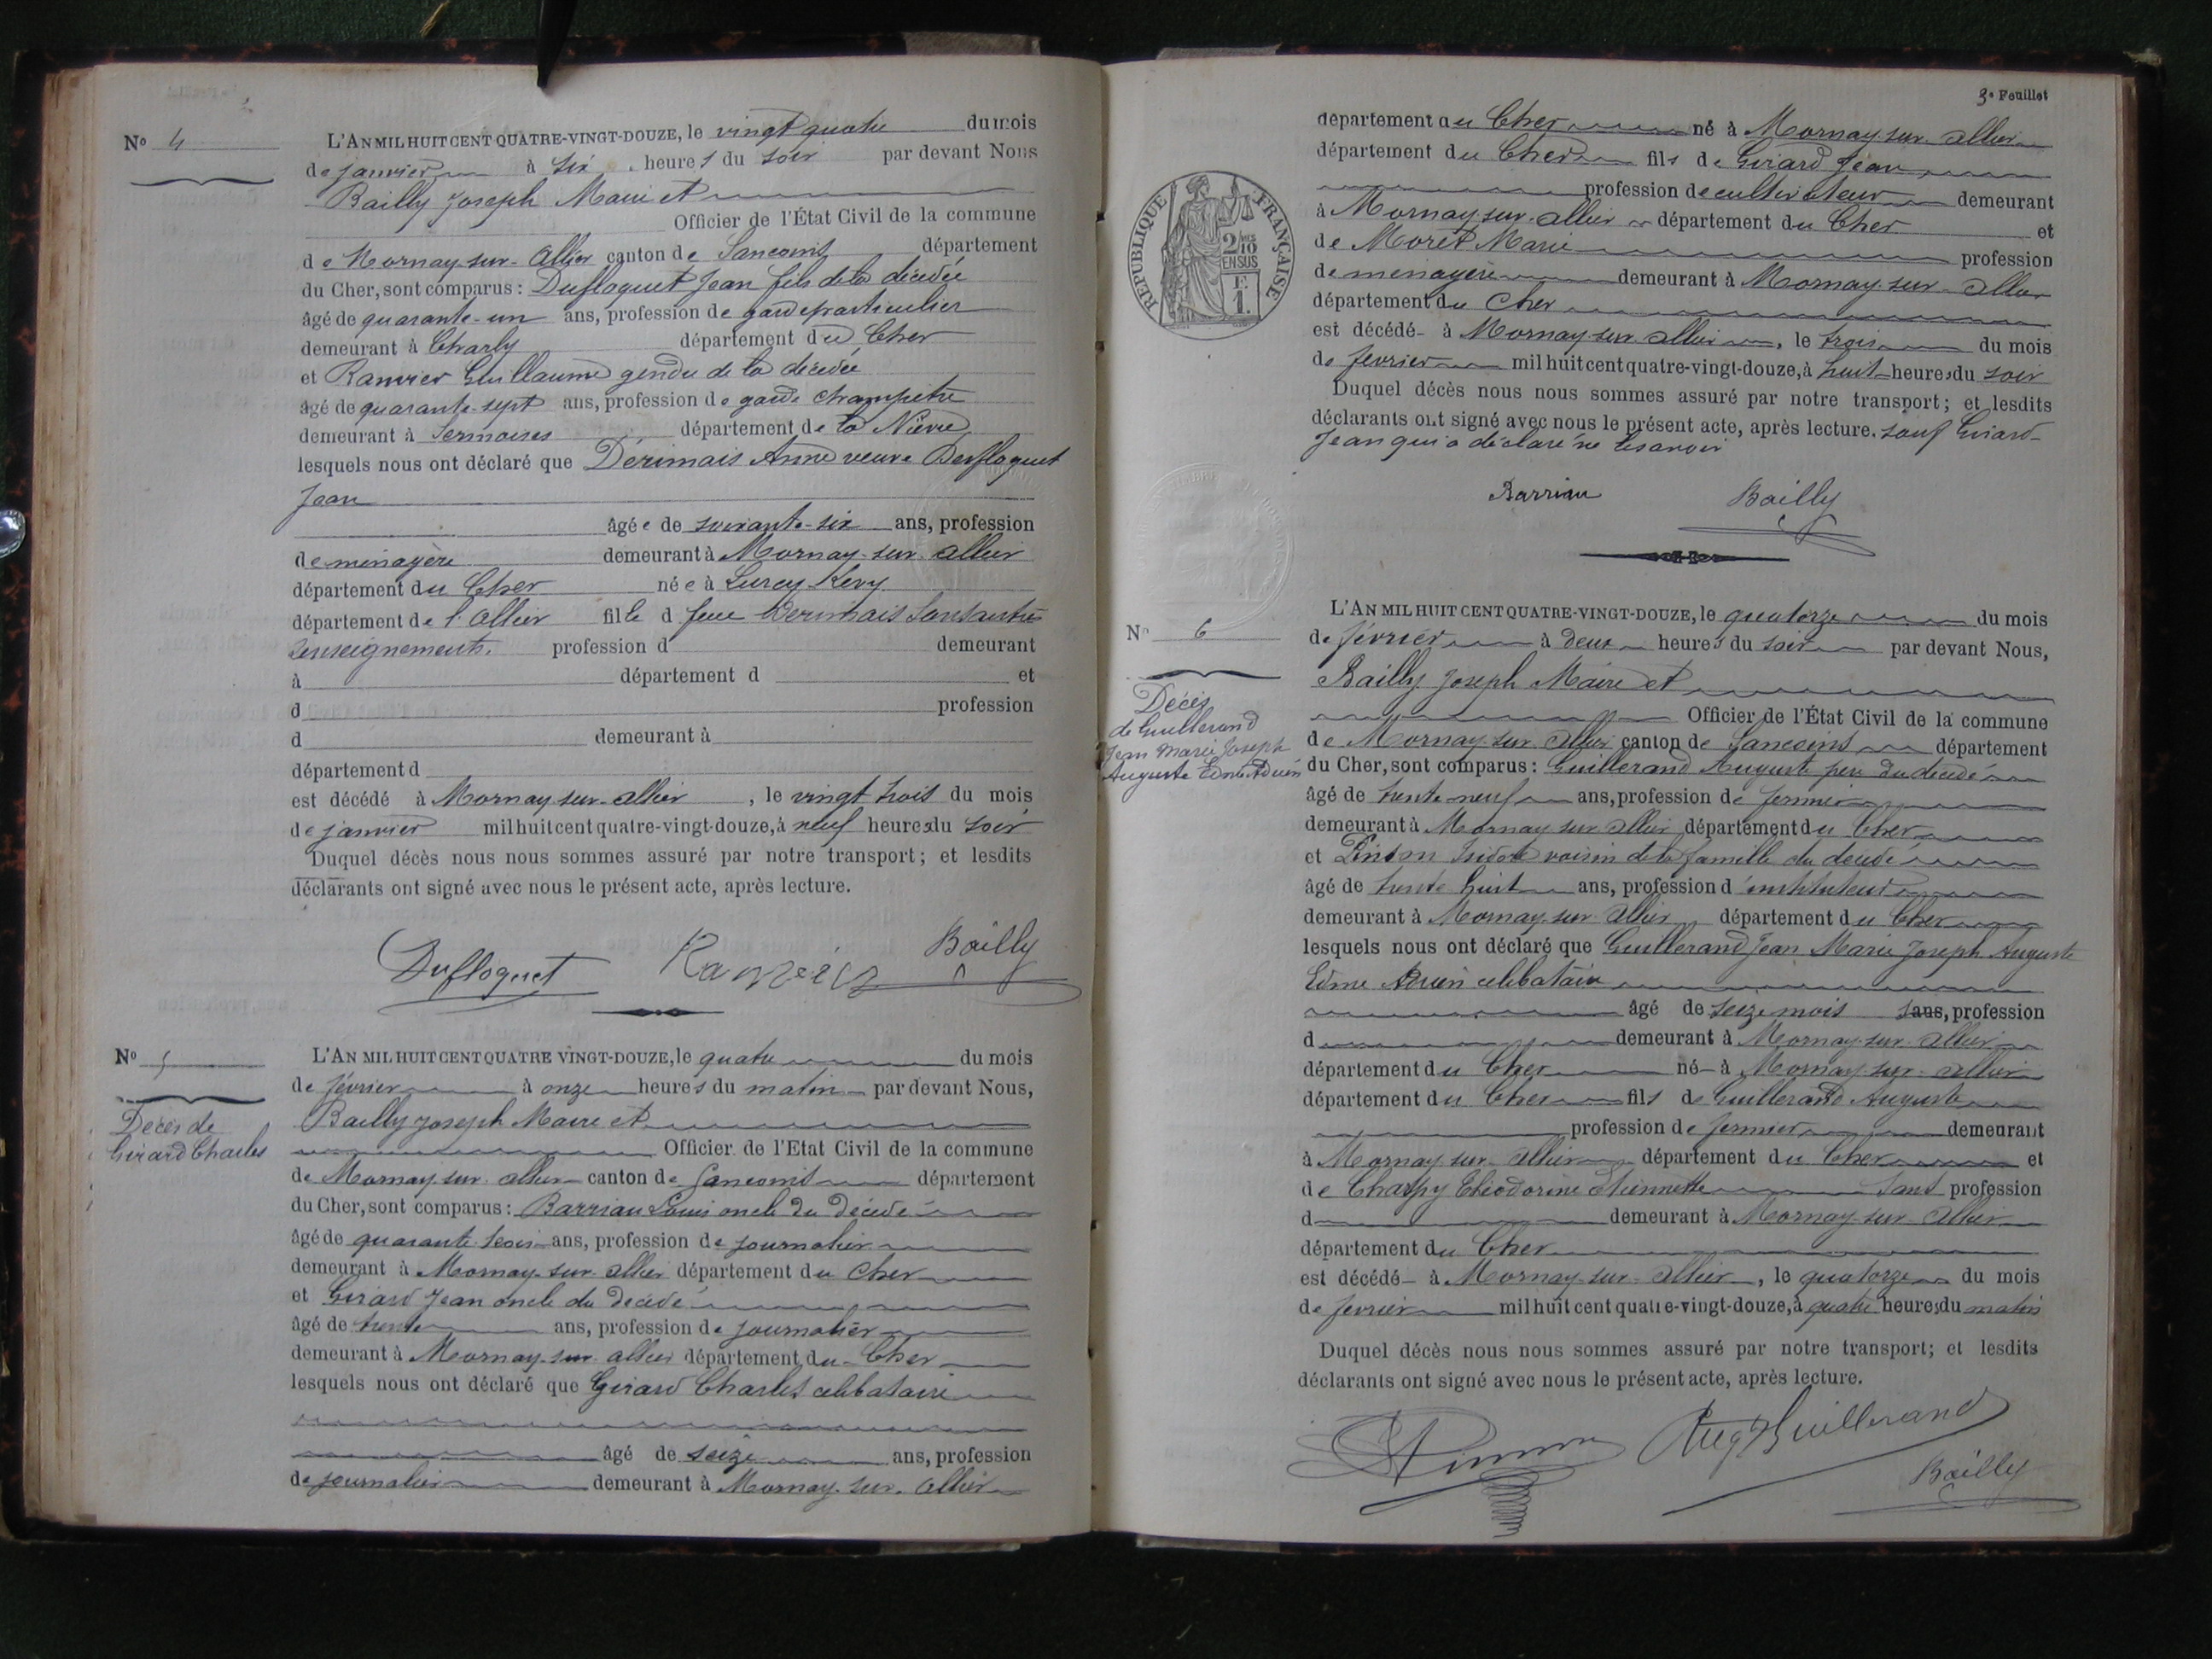 No 4
L'AN MIL HUIT CENT QUATRE-VINGT-DOUZE, le vingt quatre du mois
de janvier à six heures du soir par devant Nous
Bailly Joseph Maire et
Officier de l'État Civil de la commune
de Mornay-sur-Allier canton de Sancoins département
du Cher, sont comparus : Dufloquet Jean fils de la décédée
âgé de quarante-un ans, profession de garde particulier
demeurant à Charly département du Cher
et Ranvier Guillaume gendre de la décédée
âgé de quarante-sept ans, profession de garde champêtre
demeurant à Sermoises département de la Nièvre
lesquels nous ont déclaré que Dérimais Anne veuve Desfloquet
Jean
âgée de soixante-six ans, profession
de ménagère demeurant à Mornay-sur-Allier
département du Cher née à Lurcy-Levy
département de l'Allier fille d feue Derimais Sans autres
renseignements. profession d demeurant
à département d et
d profession
d demeurant à
département d
est décédé à Mornay-sur-Allier, le vingt trois du mois
de janvier mil huit cent quatre-vingt-douze, à neuf heures du soir
Duquel décès nous nous sommes assuré par notre transport; et lesdits
déclarants ont signé avec nous le présent acte, après lecture.
Dufloquet Ranvier Bailly
No 5
Décès de
Girard Charles
L'AN MIL HUIT CENT QUATRE VINGT-DOUZE, le quatre du mois
de février à onze heures du matin par devant Nous,
Bailly Joseph Maire et
Officier de l'Etat Civil de la commune
de Mornay-sur-Allier canton de Sancoins département
du Cher, sont comparus : Barriau Louis oncle du décédé
âgé de quarante trois ans, profession de journalier
demeurant à Mornay-sur-Allier département du Cher
et Girard Jean oncle du décédé
âgé de trente ans, profession de journalier
demeurant à Mornay-sur-Allier département du Cher
lesquels nous ont déclaré que Girard Charles célibataire
âgé de seize ans, profession
de journalier demeurant à Mornay-sur-Allier
3e Feuillet
département du Cher né à Mornay-sur-Allier
département du Cher fils de Girard Jean
profession de cultivateur demeurant
à Mornay-sur-Allier département du Cher et
de Moret Marie profession
de ménagère demeurant à Mornay-sur-Allier
département du Cher
est décédé à Mornay-sur-Allier, le trois du mois
de février mil huit cent quatre-vingt-douze, à huit heures du soir
Duquel décès nous nous sommes assuré par notre transport; et lesdits
déclarants ont signé avec nous le présent acte, après lecture. sauf Girard
Jean qui a déclaré ne le savoir
Barriau Bailly
RÉPUBLIQUE FRANÇAISE
2/10 EN SUS
F. 1.
No 6
Décès
de Guillerand
Jean Marie Joseph
Auguste Edme Adrien
L'AN MIL HUIT CENT QUATRE-VINGT-DOUZE, le quatorze du mois
de février à deux heures du soir par devant Nous,
Bailly Joseph Maire et
Officier de l'État Civil de la commune
de Mornay-sur-Allier canton de Sancoins département
du Cher, sont comparus : Guillerand Auguste père du décédé
âgé de trente-neuf ans, profession de fermier
demeurant à Mornay sur Allier département du Cher
et Isidore voisin de la famille du décédé
âgé de trente huit ans, profession d'instituteur
demeurant à Mornay-sur-Allier département du Cher
lesquels nous ont déclaré que Guillerand Jean Marie Joseph Auguste
Edme Adrien célibataire
âgé de seize mois sans, profession
d demeurant à Mornay-sur-Allier
département du Cher né à Mornay-sur-Allier
département du Cher fils de Guillerand Auguste
profession de fermier demeurant
à Mornay-sur-Allier département du Cher et
de Charpy Etiennette sans profession
d demeurant à Mornay-sur-Allier
département du Cher
est décédé à Mornay-sur-Allier, le quatorze du mois
de février mil huit cent quatre-vingt-douze, à quatre heures du matin
Duquel décès nous nous sommes assuré par notre transport; et lesdits
déclarants ont signé avec nous le présent acte, après lecture.
Aug Guillerand
Bailly